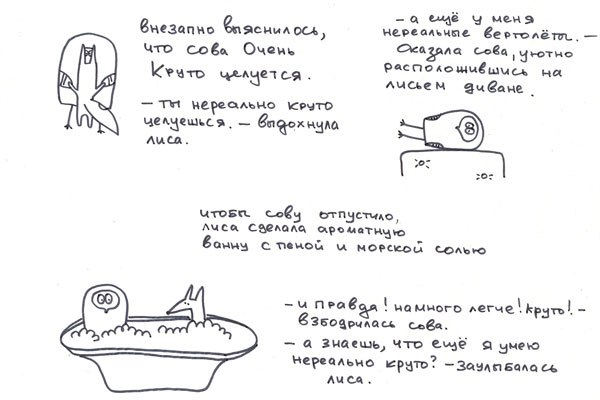 внезапно выяснилось,
что сова Очень
Круто целуется.
– ты нереально круто
целуешься. – выдохнула
лиса.
– а ещё у меня
нереальные вертолёты. –
Сказала сова, уютно
расположившись на
лисьем диване.
чтобы сову отпустило,
лиса сделала ароматную
ванну с пеной и морской солью
– и правда! намного легче! круто! –
взбодрилась сова.
– а знаешь, что ещё я умею
нереально круто? – заулыбалась
лиса.